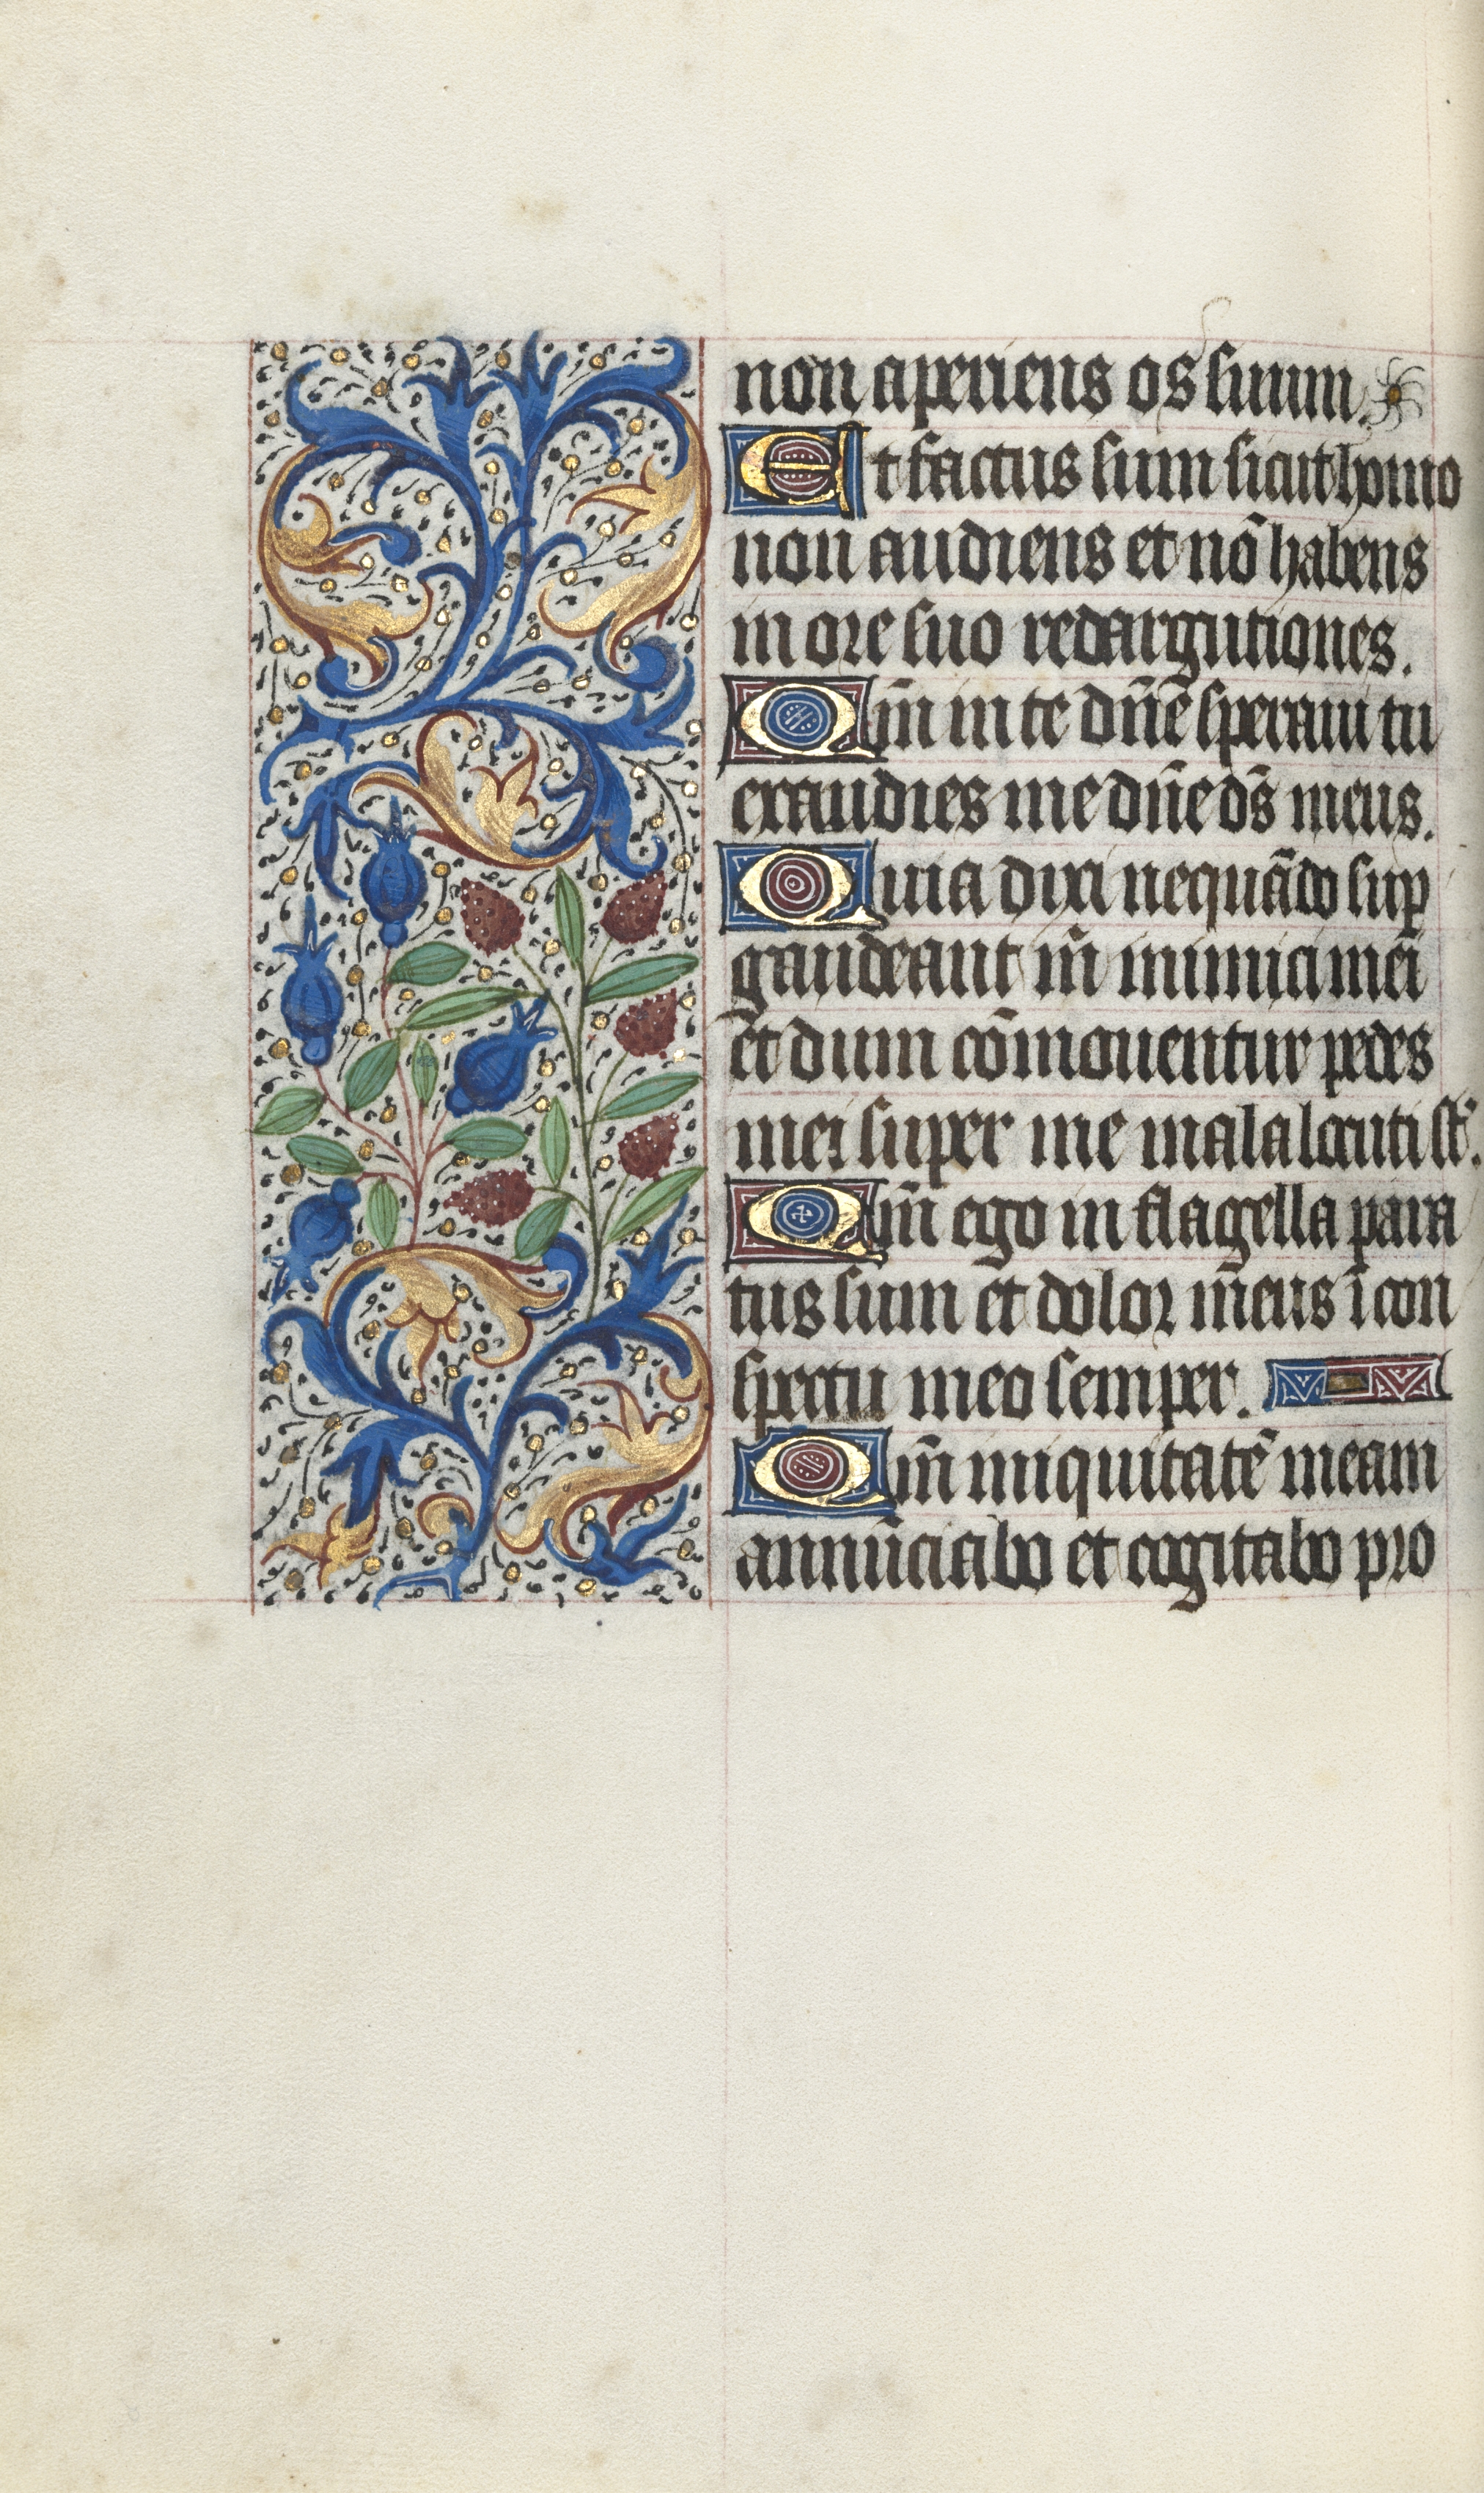 non aperiens os suum.
Et factus sum sicut homo
non audiens et nō habens
in ore suo redargutiones.
Qm̄ in te dn̄e speraui tu
exaudies me dn̄e ds̄ meus.
Quia dixi nequādo sup
gaudeant m̄ inimici mei
et dum cōmouentur pedes
mei super me mala locuti st̄.
Qm̄ ego in flagella para
tus sum et dolor meus ī con
spectu meo semper.
Qm̄ iniquitatē meam
annūciabo et cogitabo pro